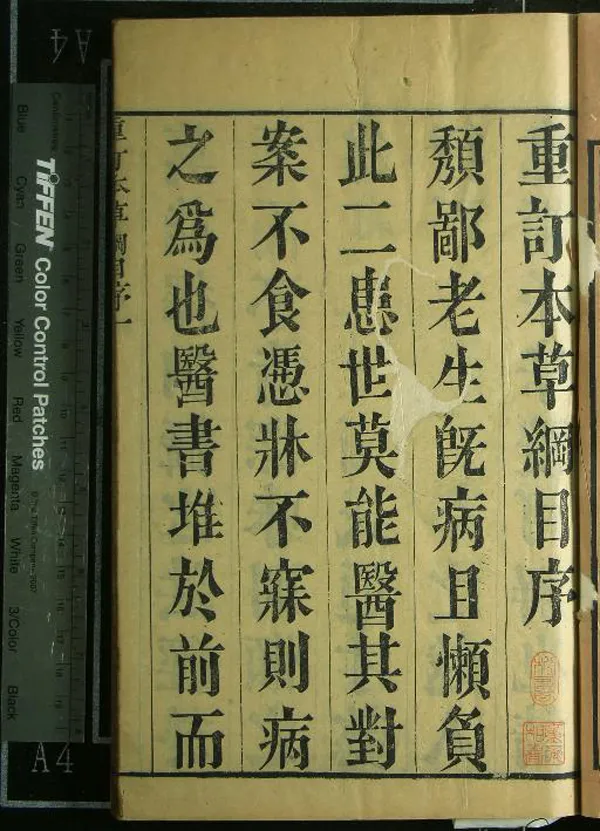 重訂本草綱目序
頽鄙老生旣病且懶負
此二患世莫能醫其對
案不食憑牀不寐則病
之爲也醫書堆於前而
重訂本草綱目序一
A4
TIFFEN Color Control Patches
Blue Cyan Green Yellow Red Magenta White 3/Color Black
A4